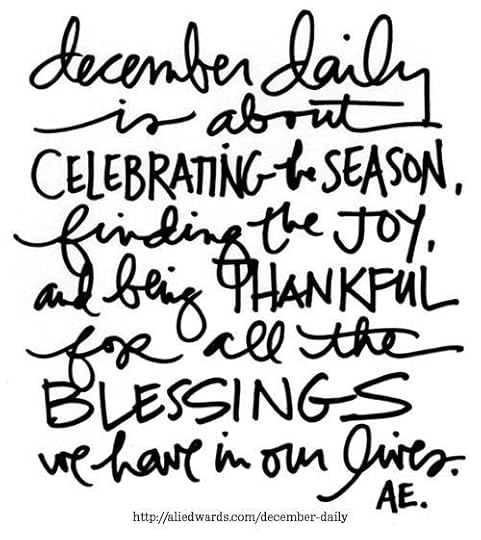 december daily
is about
CELEBRATING the SEASON,
finding the JOY,
and being THANKFUL
for all the
BLESSINGS
we have in our lives.
AE.
http://aliedwards.com/december-daily